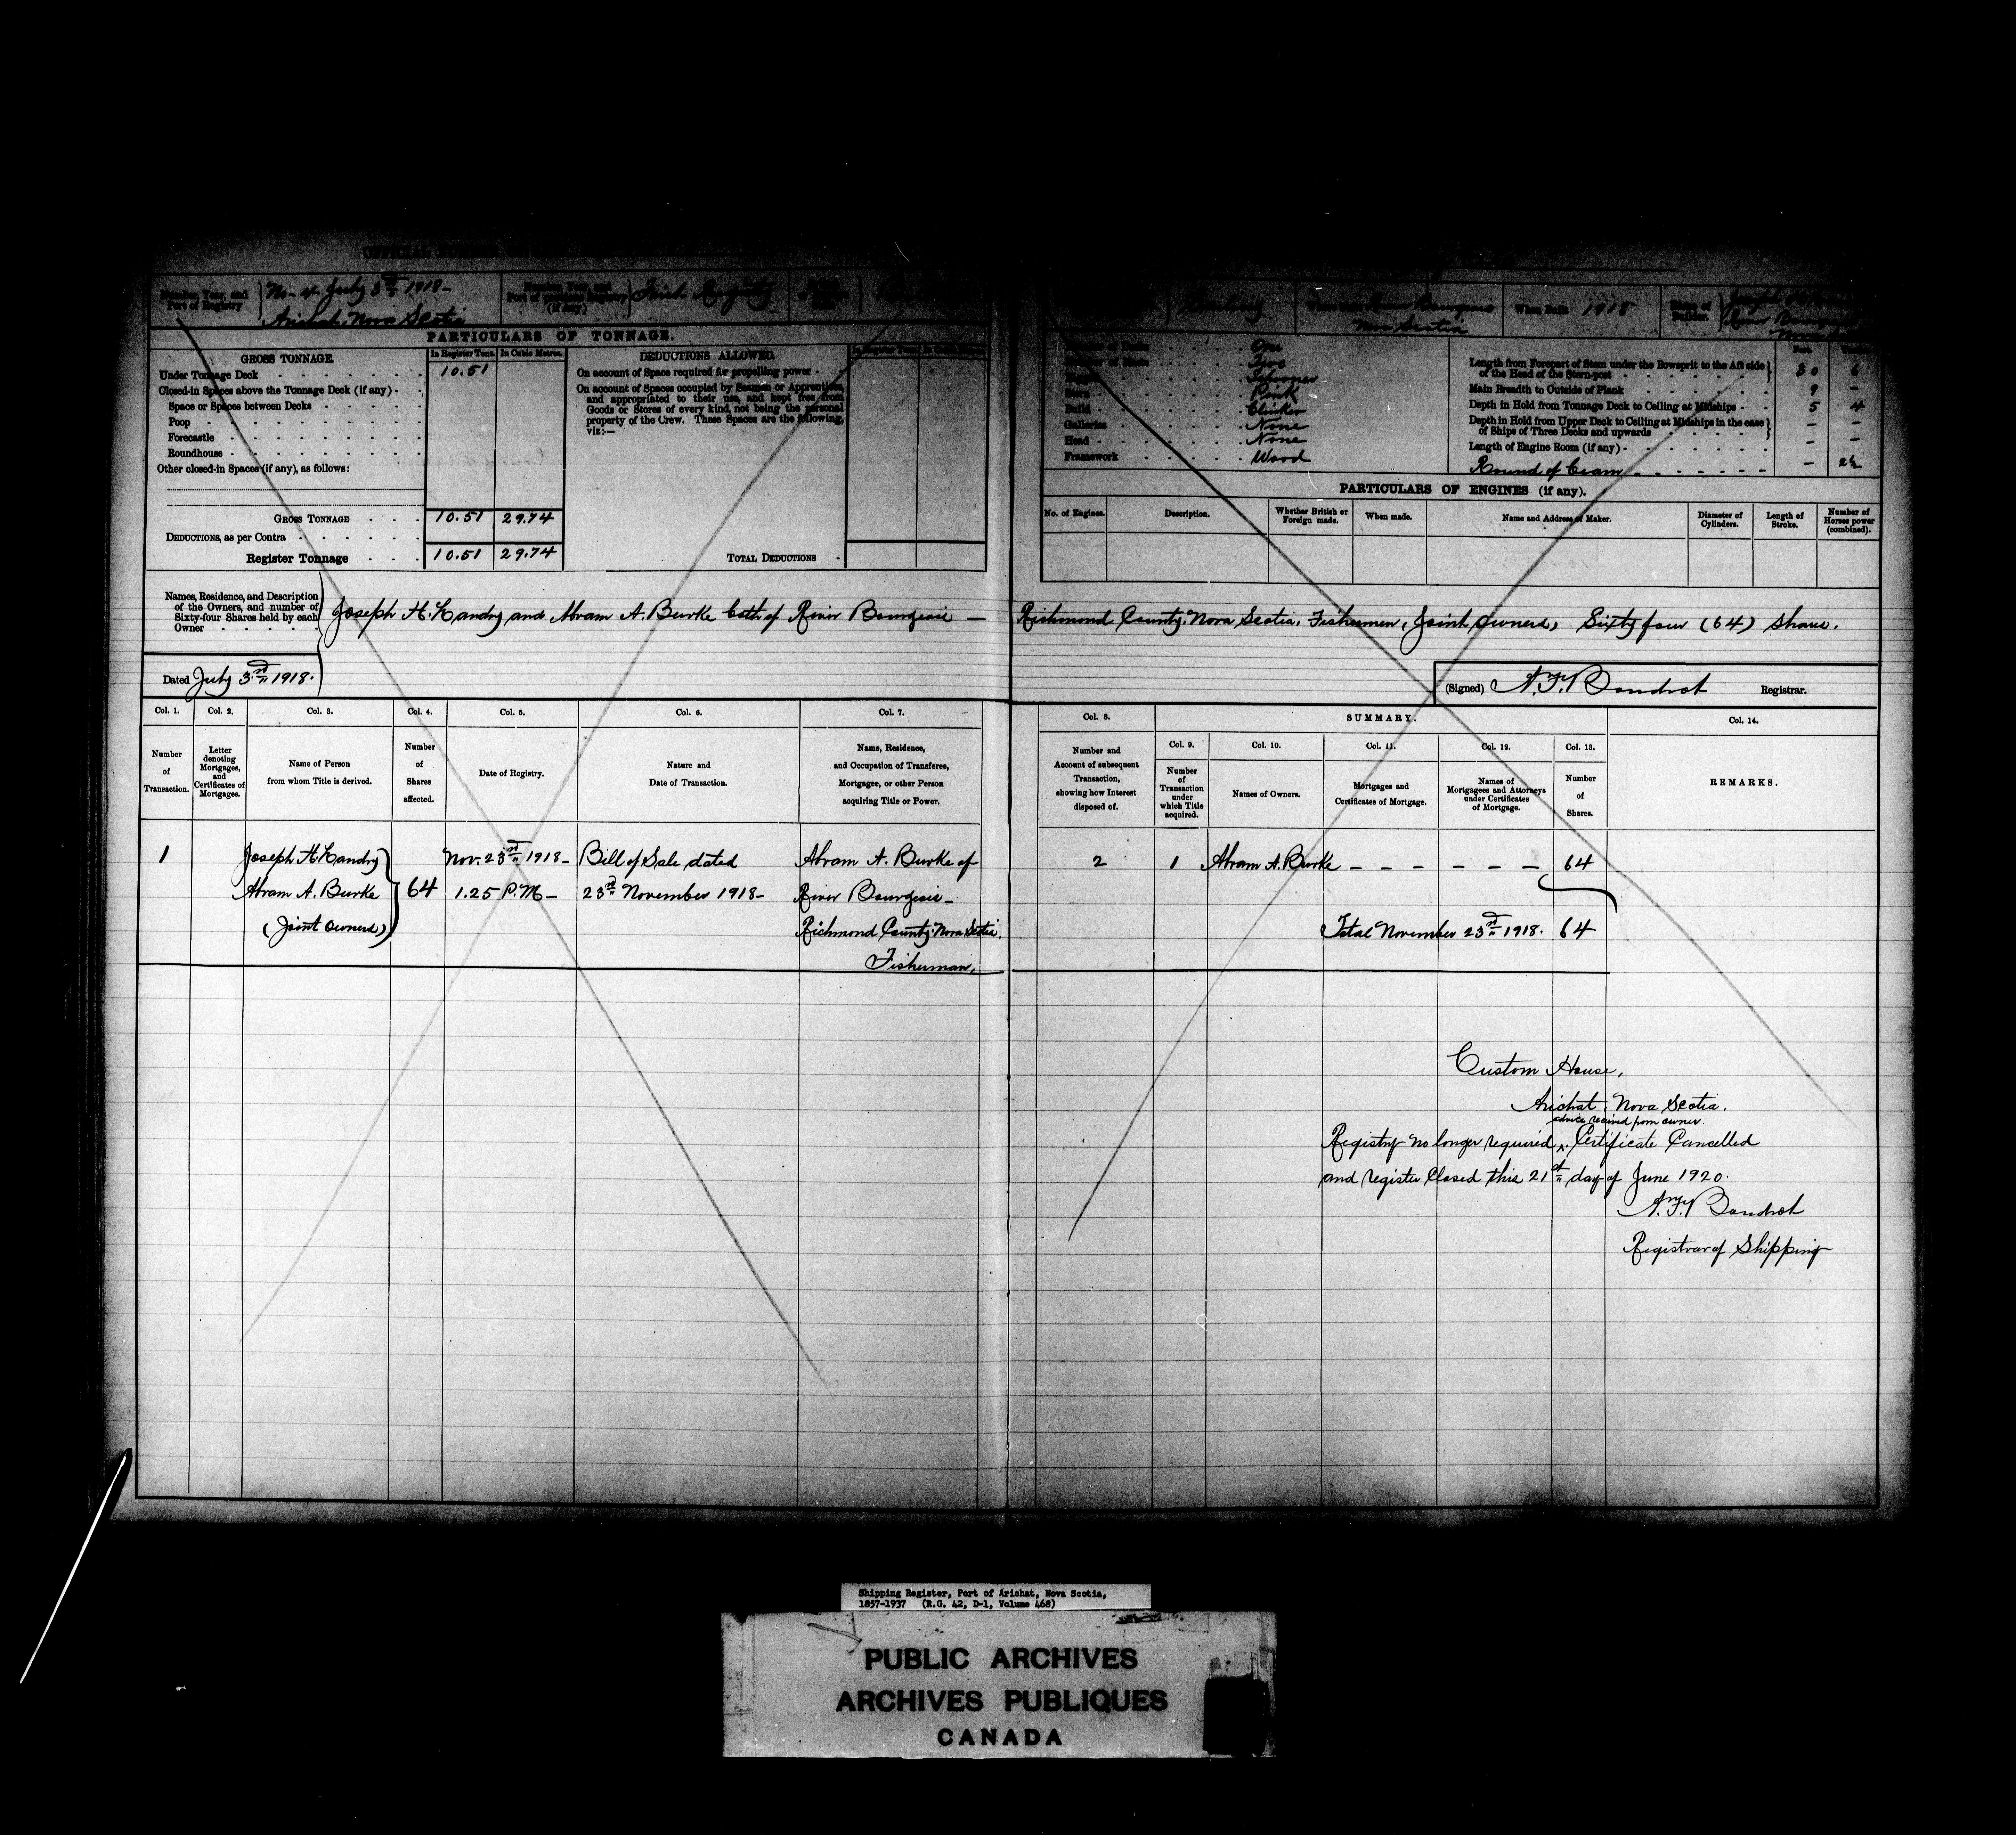 Number, Year, and Port of Registry
No- 4 July 3rd 1918-
Arichat, Nova Scotia
(if any)
First Registry
When Built 1918
Nova Scotia
PARTICULARS OF TONNAGE.
GROSS TONNAGE. In Register Tons. In Cubic Metres.
Under Tonnage Deck 10.51
Closed-in Spaces above the Tonnage Deck (if any)
Space or Spaces between Decks
Poop
Forecastle
Roundhouse
Other closed-in Spaces (if any), as follows:
GROSS TONNAGE 10.51 29.74
DEDUCTIONS, as per Contra
Register Tonnage 10.51 29.74
DEDUCTIONS ALLOWED.
On account of Space required for propelling power
On account of Spaces occupied by Seamen or Apprentices,
and appropriated to their use, and kept free from
Goods or Stores of every kind, not being the personal
property of the Crew. These Spaces are the following,
viz:—
TOTAL DEDUCTIONS
One
Two
Schooner
Pink
Build Clinker
Galleries None
Head None
Framework Wood
Length from Forepart of Stem under the Bowsprit to the Aft side
of the Head of the Stern-post 30 6
Main Breadth to Outside of Plank 9 –
Depth in Hold from Tonnage Deck to Ceiling at Midships 5 4
Depth in Hold from Upper Deck to Ceiling at Midships in the case
of Ships of Three Decks and upwards – –
Length of Engine Room (if any) – –
Round of Beam – 2½
PARTICULARS OF ENGINES (if any).
No. of Engines. Description. Whether British or Foreign made. When made. Name and Address of Maker. Diameter of Cylinders. Length of Stroke. Number of Horses power (combined).
Names, Residence, and Description
of the Owners, and number of
Sixty-four Shares held by each
Owner
Joseph H. Landry and Abram A. Burke both of River Bourgeois — Richmond County, Nova Scotia, Fishermen, Joint owners, Sixty four (64) Shares.
Dated July 3rd 1918.
(Signed) A. F. Boudrot Registrar.
Col. 1. Col. 2. Col. 3. Col. 4. Col. 5. Col. 6. Col. 7.
Number of Transaction.
Letter denoting Mortgages, and Certificates of Mortgages.
Name of Person from whom Title is derived.
Number of Shares affected.
Date of Registry.
Nature and Date of Transaction.
Name, Residence, and Occupation of Transferee, Mortgagee, or other Person acquiring Title or Power.
Col. 8. SUMMARY. Col. 14.
Col. 9. Col. 10. Col. 11. Col. 12. Col. 13.
Number and Account of subsequent Transaction, showing how Interest disposed of.
Number of Transaction under which Title acquired.
Names of Owners.
Mortgages and Certificates of Mortgage.
Names of Mortgagees and Attorneys under Certificates of Mortgage.
Number of Shares.
REMARKS.
1 Joseph H. Landry Nov. 23rd 1918- Bill of Sale dated Abram A. Burke of
Abram A. Burke 64 1.25 P.M- 23rd November 1918- River Bourgeois-
(Joint owners) Richmond County, Nova Scotia,
Fisherman.
2 1 Abram A. Burke – – – – – – 64
Total November 23rd 1918. 64
Custom House,
Arichat, Nova Scotia.
advice received from owner.
Registry no longer required ^. Certificate Cancelled
and register closed this 21st day of June 1920.
A. F. Boudrot
Registrar of Shipping
Shipping Register, Port of Arichat, Nova Scotia,
1857-1937 (R.G. 42, D-1, Volume 468)
PUBLIC ARCHIVES
ARCHIVES PUBLIQUES
CANADA